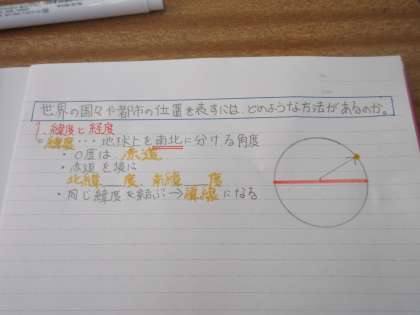 世界の国々や都市の位置を表すには、どのような方法があるのか。
1、緯度と経度
○緯度・・・地球上を南北に分ける角度
・0度は 赤道
・赤道を境に
北緯__度、南緯__度
・同じ緯度を結ぶ→緯線になる